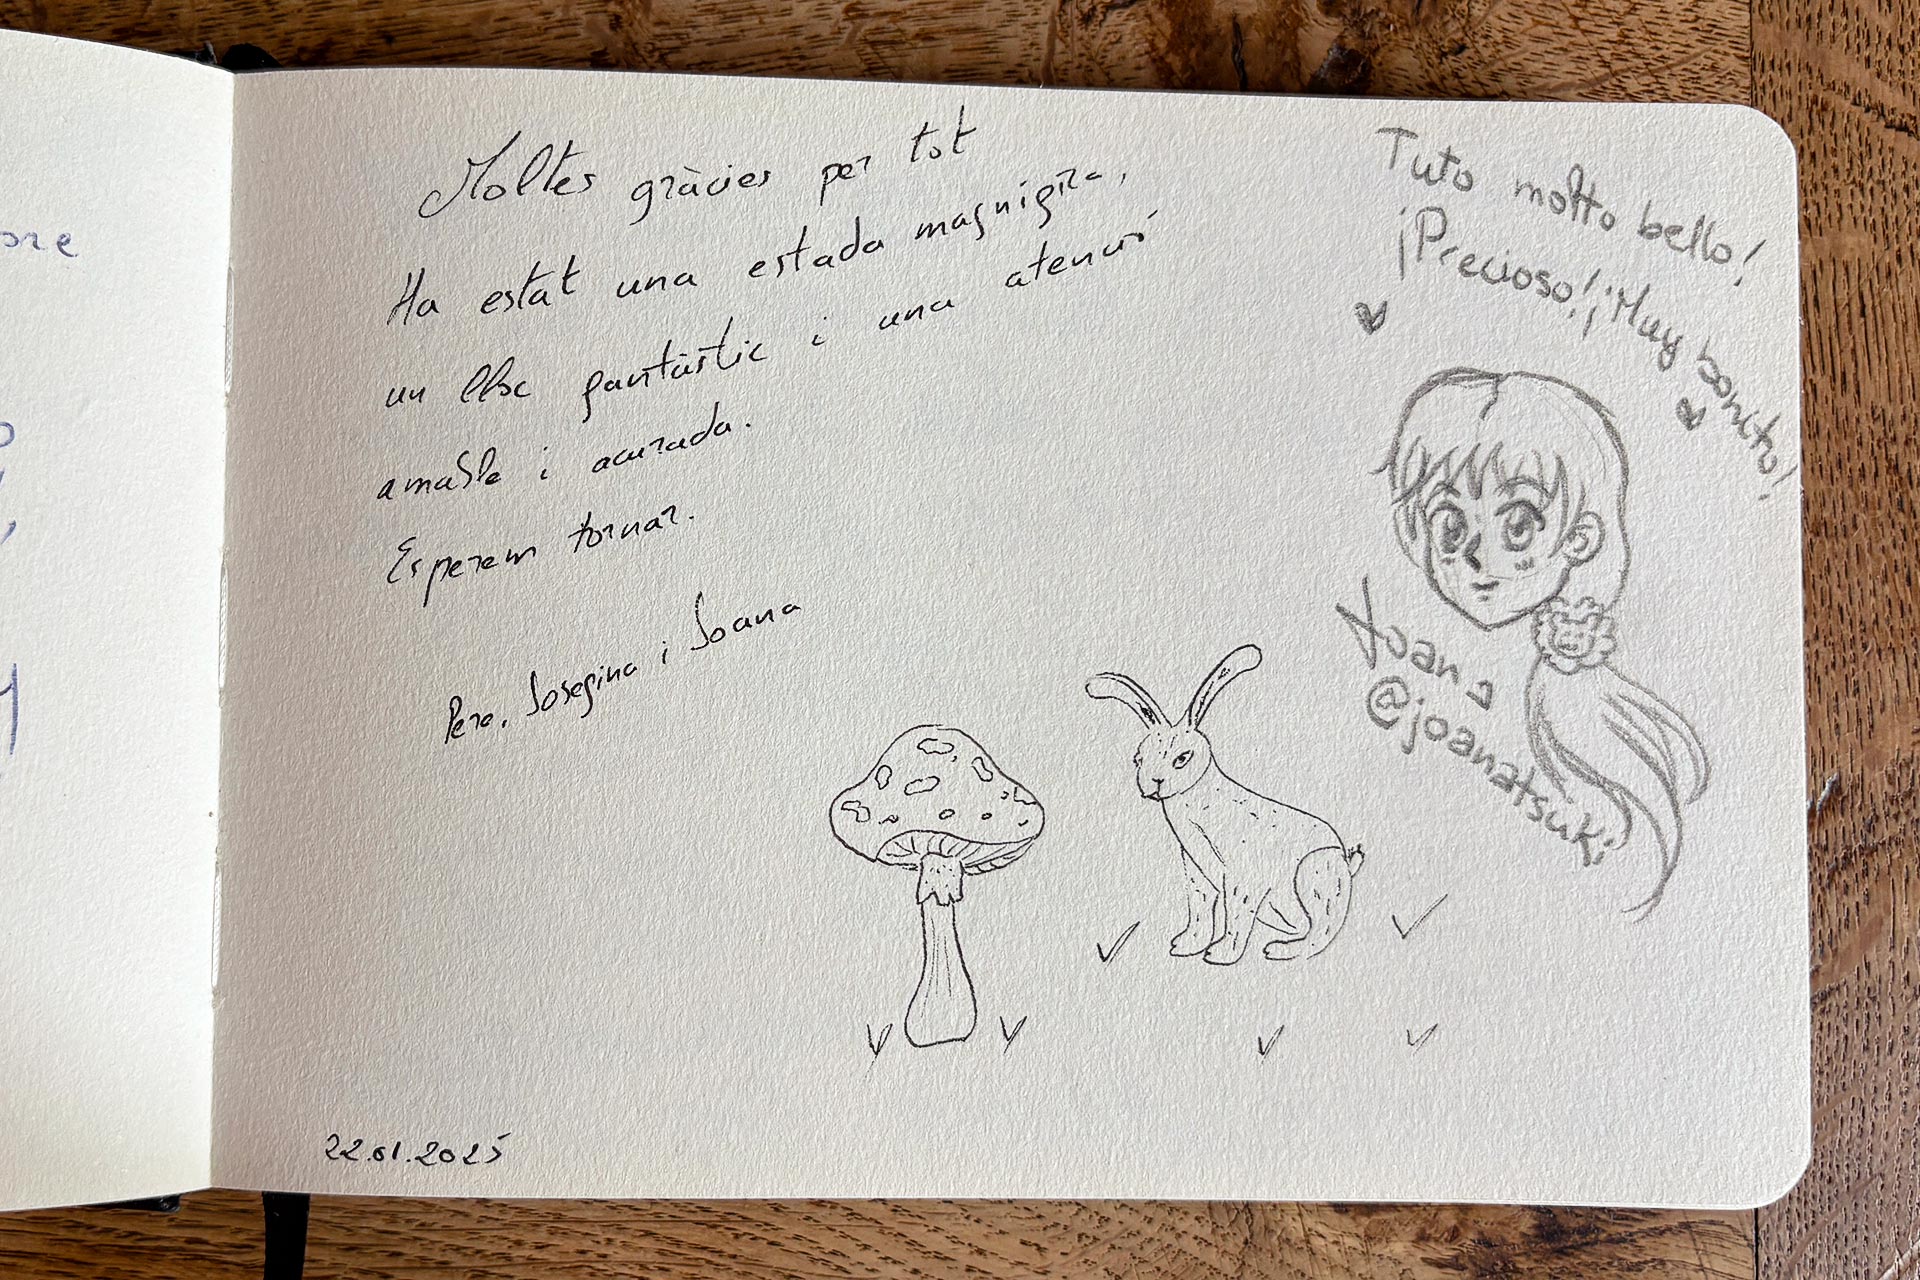 ore
Moltes gràcies per tot
Ha estat una estada magnífica,
un lloc fantàstic i una atenció
amable i acurada.
Esperem tornar.
Pere, Josefina i Joana
22.01.2025
Tuto molto bello!
¡Precioso! ¡Muy bonito!
Joana
@joanatsuki